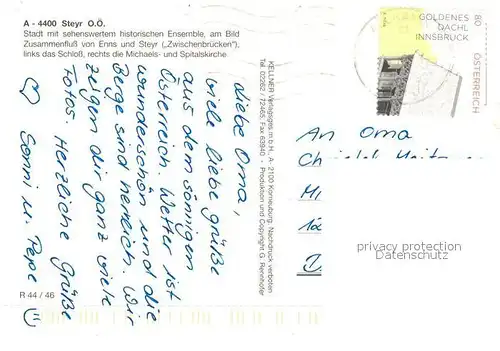 A - 4400 Steyr O.Ö.
Stadt mit sehenswertem historischen Ensemble, am Bild
Zusammenfluß von Enns und Steyr („Zwischenbrücken"),
links das Schloß, rechts die Michaels- und Spitalskirche
Liebe Oma,
viele liebe Grüße
aus dem sonnigen
Österreich. Wetter ist
wunderschön und die
Berge sind herrlich. Wir
zeigen dir ganz viele
Fotos. Herzliche Grüße
♡ Sonni u. Pepe
R 44 / 46
KELLNER Verlagsges.m.b.H., A - 2100 Korneuburg, Nachdruck verboten
Tel. 02262 / 72465, Fax 63940 - Produktion und Copyright G. Rennhofer
GOLDENES
DACHL
INNSBRUCK
80
ÖSTERREICH
An Oma
privacy protection
DARABANTH.COM